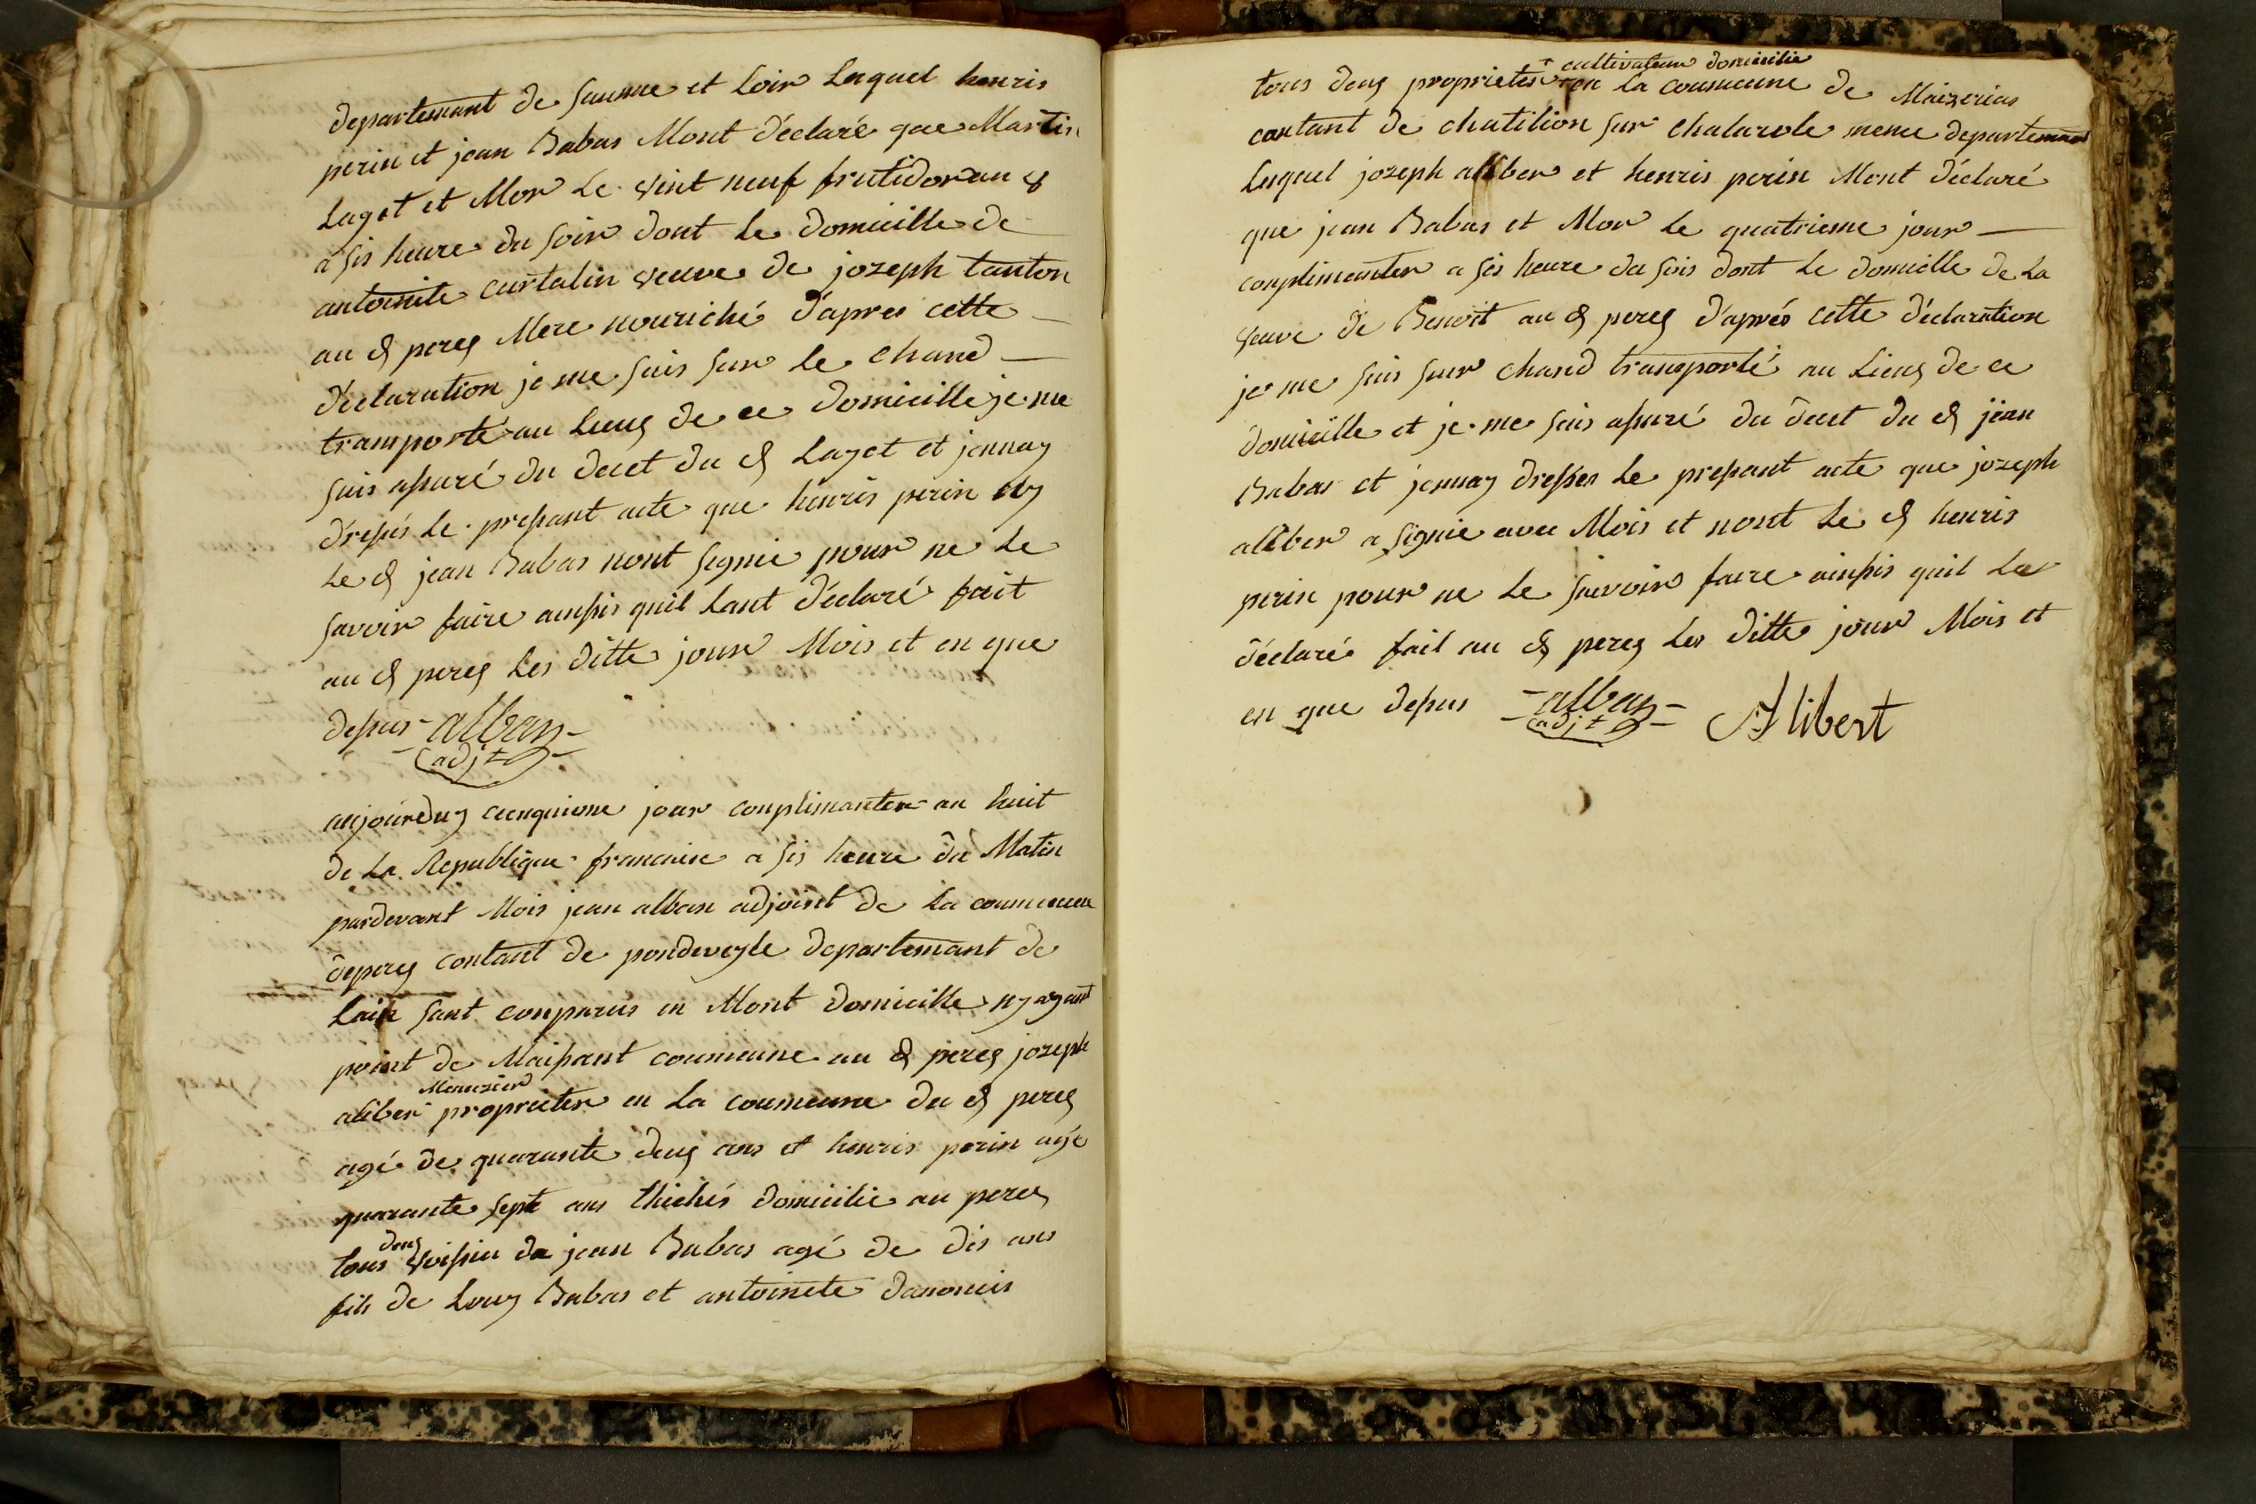 departemant de saunne et Loir Laquel henris
perin et jean Babas Mont déclaré que Martin
Layet et Mor Le vint neuf frutidor an 8
a sis heure du soir dont Le domicille de
antoinite curtalin veuve de jozeph tanton
au d pereg Mere nouriché d'apres cette
déclaration je me suis sur Le chand
tramporté au Lieug de ce domicille je me
suis assuré du decet du d Layet et jennay
dressés Le pressant acte que henris perin
Le d jean Babas nont signié pour ne Le
savoir faire ainssis quil Lant déclaré fait
au d pereg Les ditte jour Mois et en que
dessus alban
adjt
aujourduy cunquieme jour complimanter an huit
de La Republique francaise a sis heure du Matin
pardevant Mois jean alban adjoint de La coummune
depereg contant de pondeveyle departemant de
Lain sant comparus en Mont domicille ny ayant
point de Maissant coumeune au d pereg jozeph
Menuzier
aliber proprieter en La coumeune du d pereg
agé de quarante deug ans et henris perin agé
quarante sept ans thichés domicilié au pereg
deug
tous voissin de jean Babas agé de dis ans
fils de Louy Babas et antoinete
cultivateur domicilié
tous deug proprieter en La coumeune de Maizerias
cantant de chatilion sur chalarole meme departemant
Luquel jozeph aliber et henris perin Mont déclaré
que jean Babas et Mor Le quatrieme jour
complimenter a sis heure du soir dont Le domicille de La
veuve de Benoit au d pereg d'aprés cette déclaration
je me suis sur chand tramporté au Lieug de ce
domicille et je me suis assuré du decet du d jean
Babas et jennay dresser Le pressant acte que jozeph
aliber a signié avec Mois et nont Le d henris
perin pour ne Le savoir faire ainssis quil La
déclaré fait au d pereg Les ditte jour Mois et
en que dessus alban Alibert
adjt